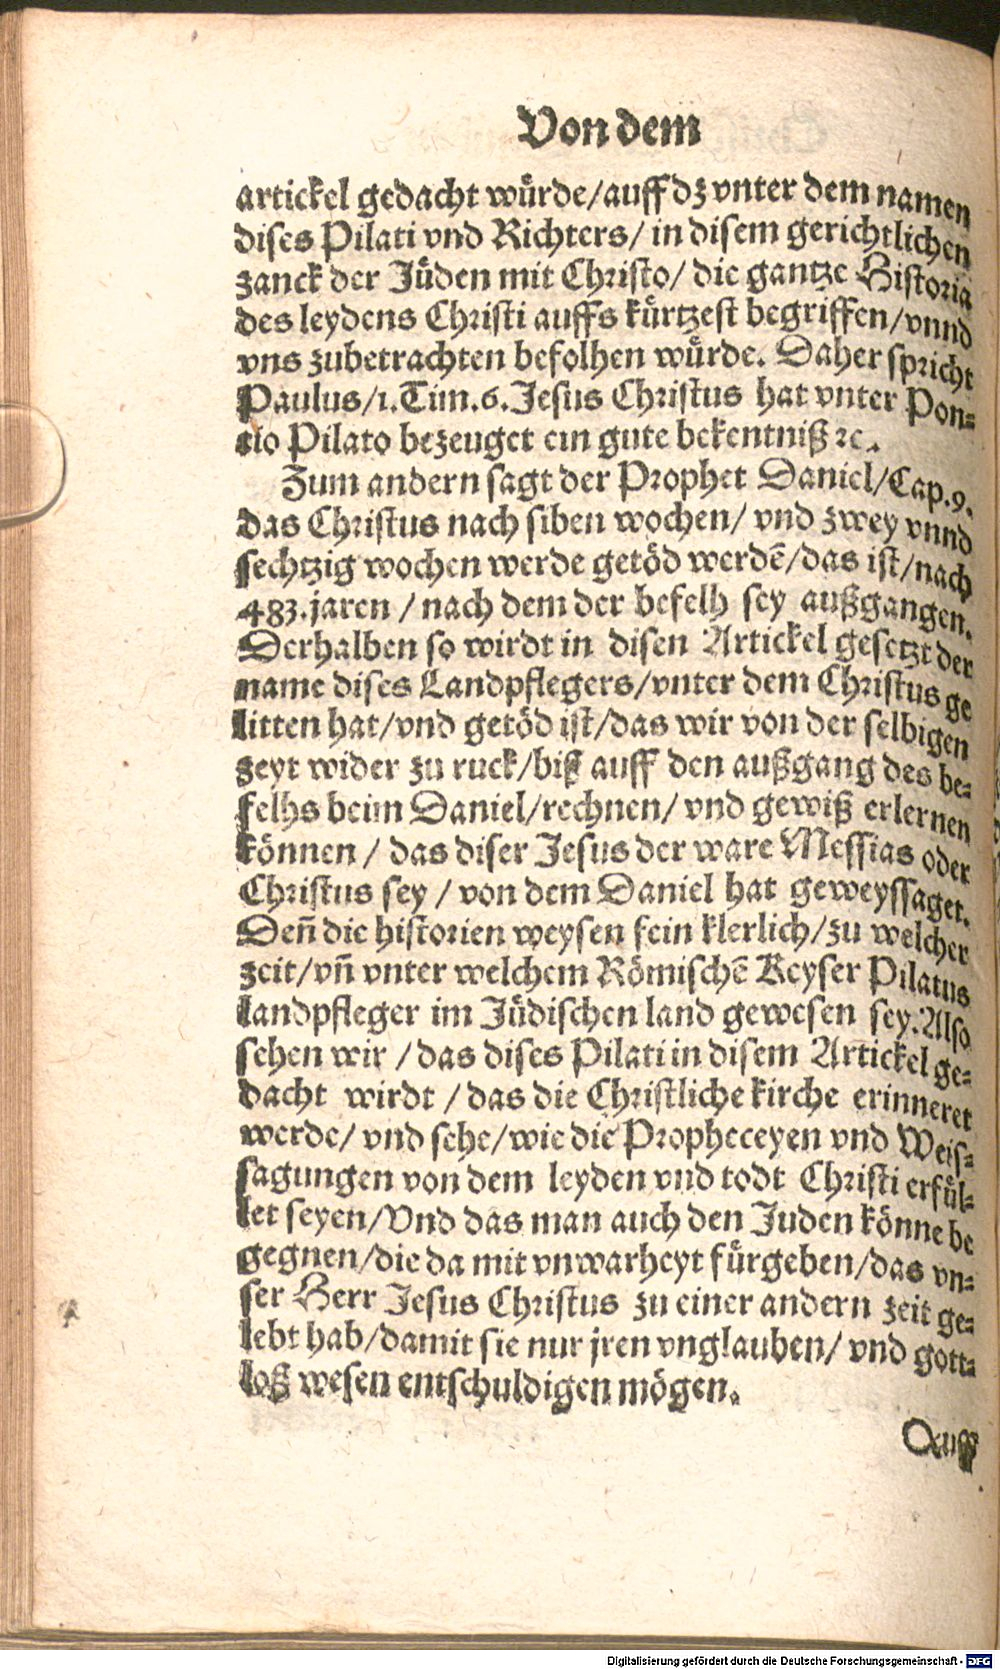 Von dem
artickel gedacht wuͤrde/auff dz vnter dem namen
dises Pilati vnd Richters/ in disem gerichtlichen
zanck der Juͤden mit Christo/ die gantze Historia
des leydens Christi auffs kuͤrtzest begriffen/vnnd
vns zubetrachten befolhen wuͤrde. Daher spricht
Paulus/1.Tim.6.Jesus Christus hat vnter Pon⸗
tio Pilato bezeuget ein gute bekentniß ꝛc.
Zum andern sagt der Prophet Daniel/Cap.9.
das Christus nach siben wochen/ vnd zwey vnnd
sechtzig wochen werde getöd werdē/das ist/nach
483.jaren / nach dem der befelh sey außgangen.
Derhalben so wirdt in disen Artickel gesetzt der
name dises Landpflegers/vnter dem Christus ge
litten hat/vnd getöd ist/das wir von der selbigen
zeyt wider zu ruck/biß auff den außgang des be⸗
felhs beim Daniel/rechnen/ vnd gewiß erlernen
können / das diser Jesus der ware Messias oder
Christus sey / von dem Daniel hat geweyssaget.
Deñ die historien weysen fein klerlich/zu welcher
zeit/vñ vnter welchem Römischē Keyser Pilatus
landpfleger im Juͤdischen land gewesen sey.Also
sehen wir /das dises Pilati in disem Artickel ge⸗
dacht wirdt / das die Christliche kirche erinneret
werde/ vnd sehe/wie die Propheceyen vnd Weis⸗
sagungen von dem leyden vnd todt Christi erfuͤl⸗
let seyen/Vnd das man auch den Juden könne be
gegnen/die da mit vnwarheyt fuͤrgeben/das vn⸗
ser Herr Jesus Christus zu einer andern zeit ge⸗
lebt hab/damit sie nur jren vnglauben/ vnd gott⸗
loß wesen entschuldigen mögen.
Auff
Digitalisierung gefördert durch die Deutsche Forschungsgemeinschaft - DFG